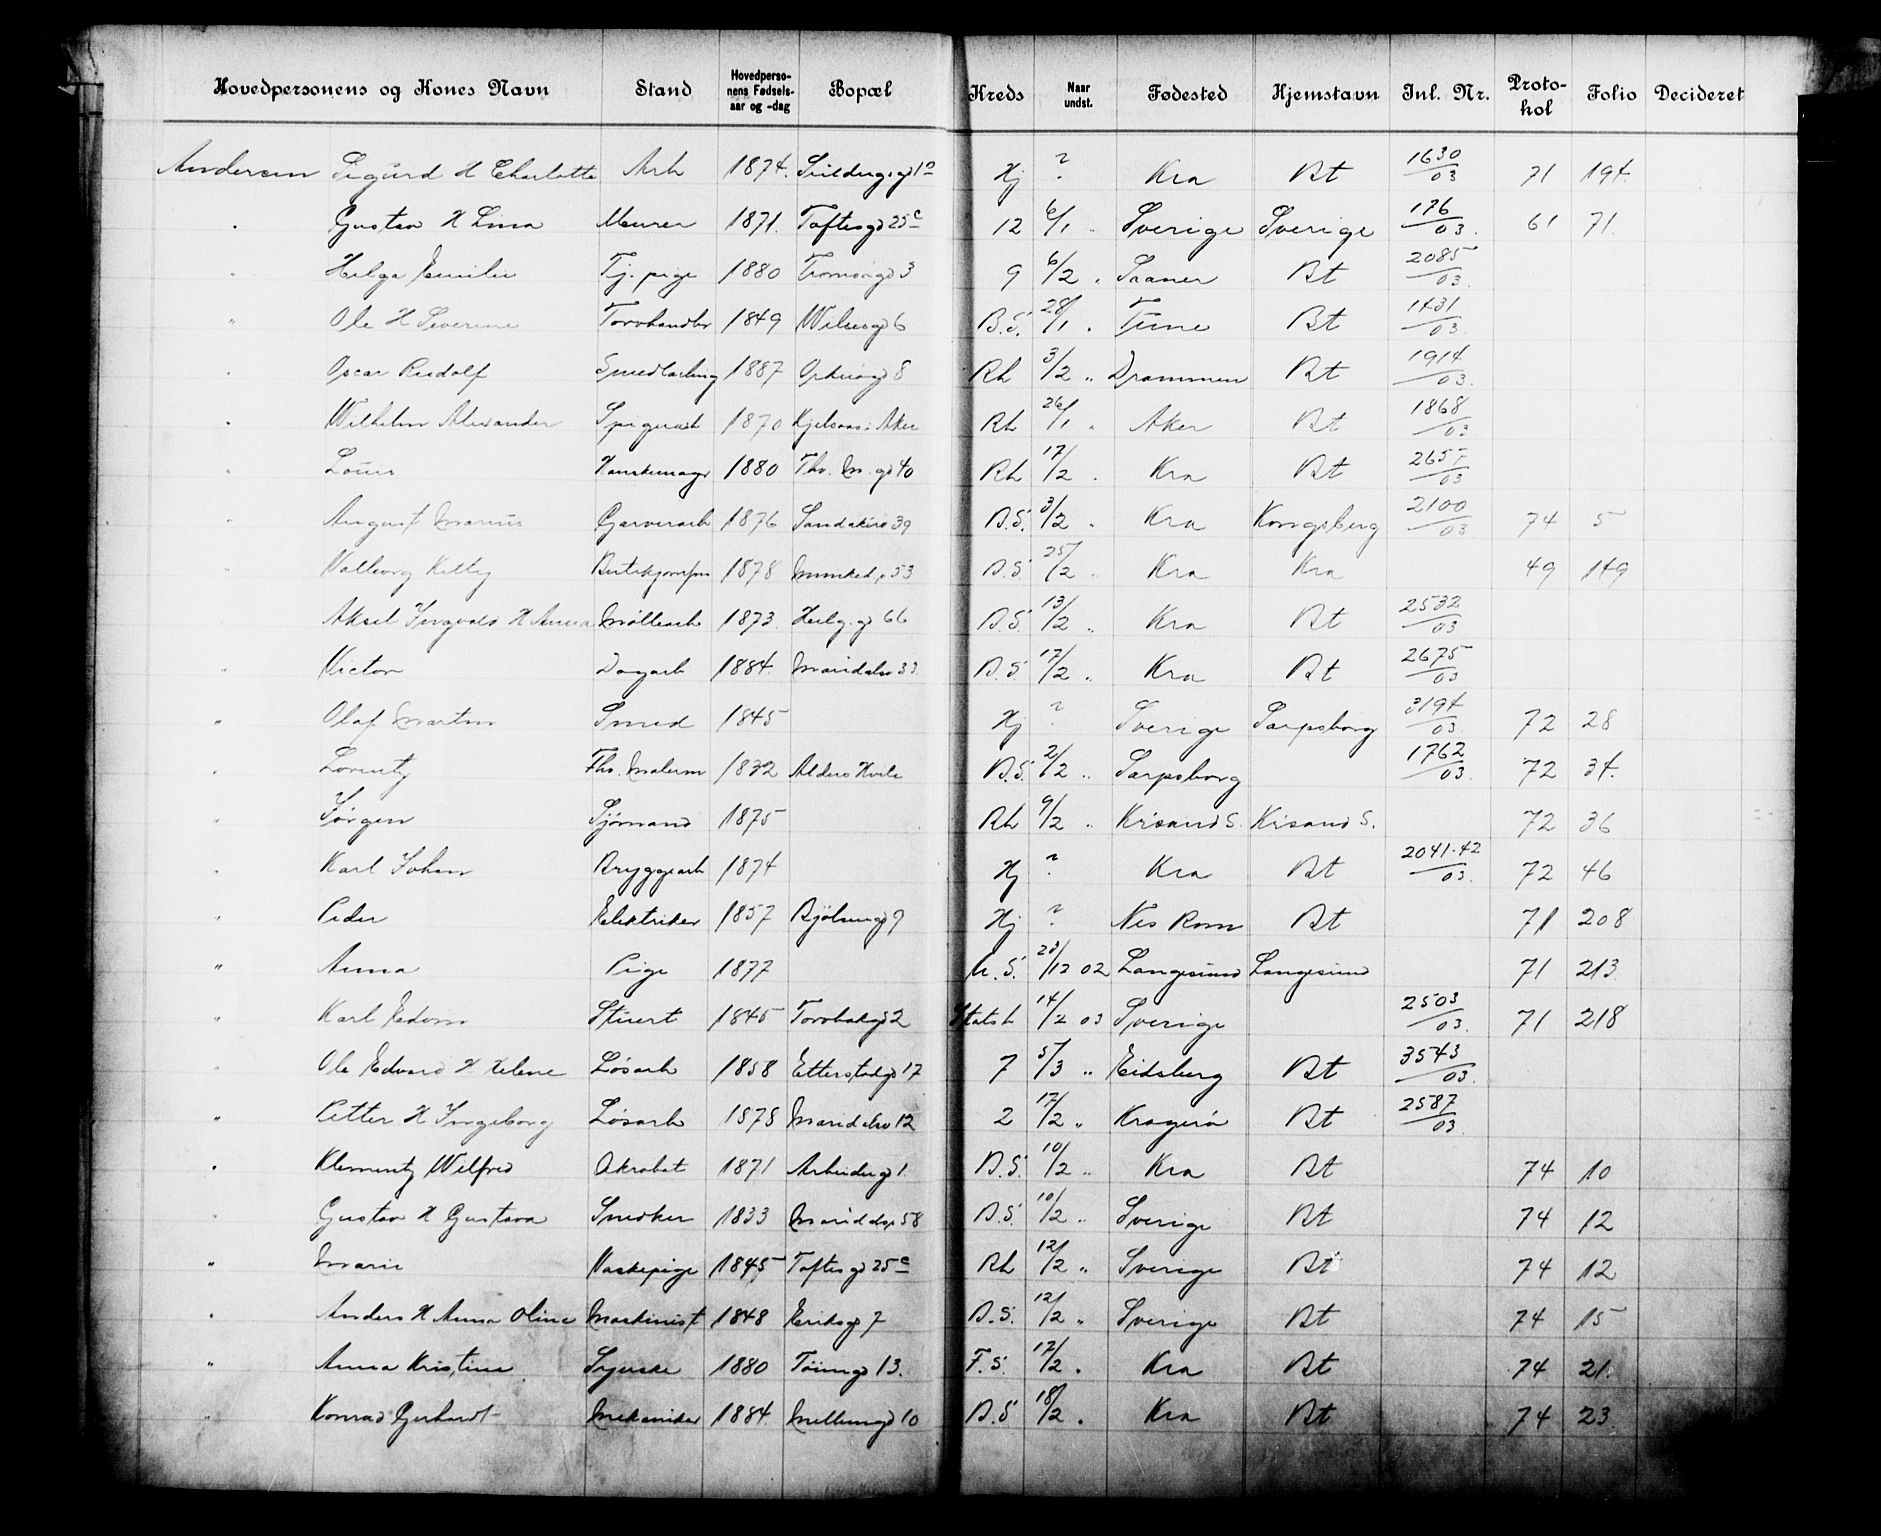 Hovedpersonens og Kones Navn Stand Hovedpersonens Fødselsaar og -dag Bopæl Kreds Naar undst. Fødested Hjemstavn Inl. Nr. Protokol Folio Decideret
Andersen Sigurd H Charlotte Arb 1874. Hj ? Kra Bt 1630/03 71 194.
" Gustav H Lina Murer 1871. Toftesgd 25c 12 6/1 " Sverige Sverige 176/03. 61 71.
" Helga Emilie Tj. pige 1880 Tromsøgd 3 9 6/2 " Bt 2085/03
" Ole H Severine Torvhandler 1849 Wilsesgd 6 B.S. 28/1 " Tune Bt 1431/03.
" Oscar Rudolf 1887 8 Rh 3/2 " Drammen Bt 1914/03.
" Wilhelm Alexander 1870 Kjelsaas i Aker Rh 26/1 " Aker Bt 1868/03
" Louis Hanskemagr 1880 Thv. M. gd 40 Rh 17/2 " Kra Bt 2657/03
" August Marius Garverarb 1876 Sandakerv 39 B.S. 3/2 " Kra Kongsberg 2100/03 74 5
" Valborg Kitty 1878 Munked. 53 B.S. 25/2 " Kra Kra 49 149
Aksel Ingvald H Anna Møllearb 1873. Helg. gd 66 B.S. 13/2 " Kra Bt 2532/03
" Victor Dagarb 1884. Maridalsv 33 B.S. 17/2 " Kra Bt 2675/03
" Olaf Martin Smed 1845 Hj ? Sverige Sarpsborg 3194/03. 72 28
" Lorentz Fhv. Malerm 1832 Alders Hvile B.S. 2/2 " Sarpsborg 1762/03. 72 34.
" Jørgen Sjømand 1875 Rh 9/2 " Krisand S. Krisand S. 72 36
" Karl Johan Bryggearb 1874 Hj ? Kra Bt 2041-42/03. 72 46
" Peder Elektriker 1857 Bjølsengd 9 Hj ? Nes Rom Bt 71 208
" Anna Pige 1877 U.S. 23/12 02 Langesund Langesund 71 213.
" Karl Edvin Stuert 1845 Torvbakgd 2 14/2 03 Sverige 2503/03. 71 218
" Ole Edvard H Helene Løsarb 1858 Etterstadgd 17 7 5/3 " Eidsberg Bt 3543/03.
" Petter H Ingeborg Løsarb 1878 Maridalsv 12 2 17/2 " Kragerø Bt 2587/03.
" Klementz Wilfred Akrobat 1871 Arbeidergd 1. B.S. 10/2 " Kra Bt 74 10
" Gustav H Gustava Snedker 1833 58 B.S. 10/2 " Sverige Bt 74 12
" Marie Vaskepige 1845 Toftesgd 25c Rh 12/2 " Sverige Bt 74 12
" Anders H Anna Oline Maskinist 1848 Eriksgd 7 B.S. 12/2 " Sverige Bt 74 15
" Anna Kristine Syerske 1880 Tøiengd 13. F.S. 17/2 " Kra Bt 74 21.
" Konrad Gerhardt Mekaniker 1884. Mellemgd 10 B.S 18/2 " Kra Bt 74 23.